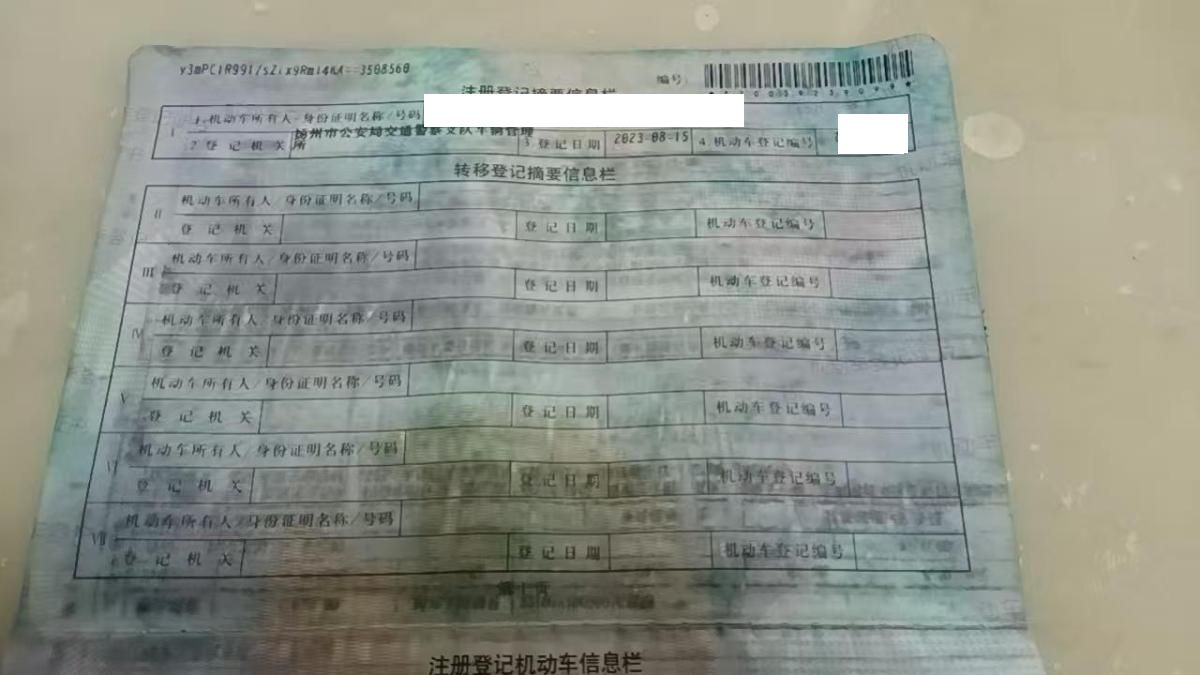 y3mPC1R991/sZix9Rmi4NA==3508560
编号:
注册登记摘要信息栏
I 1.机动车所有人/身份证明名称/号码
2.登记机关 扬州市公安局交通警察支队车辆管理所 3.登记日期 2023-08-15 4.机动车登记编号
转移登记摘要信息栏
II 机动车所有人/身份证明名称/号码
登记机关 登记日期 机动车登记编号
III 机动车所有人/身份证明名称/号码
登记机关 登记日期 机动车登记编号
IV 机动车所有人/身份证明名称/号码
登记机关 登记日期 机动车登记编号
V 机动车所有人/身份证明名称/号码
登记机关 登记日期 机动车登记编号
VI 机动车所有人/身份证明名称/号码
登记机关 登记日期 机动车登记编号
VII 机动车所有人/身份证明名称/号码
登记机关 登记日期 机动车登记编号
第1页
注册登记机动车信息栏